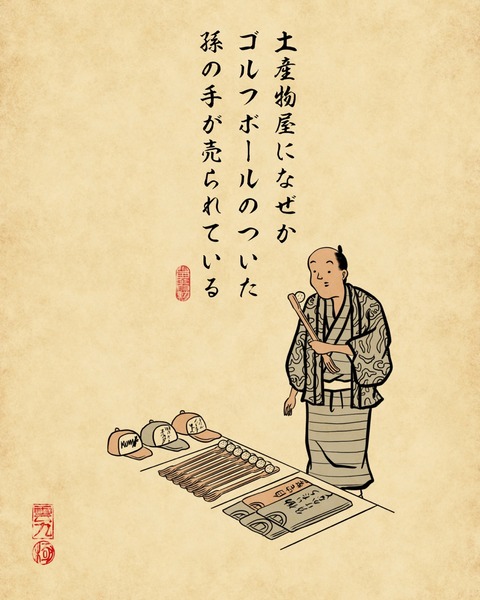 土産物屋になぜか
ゴルフボールのついた
孫の手が売られている